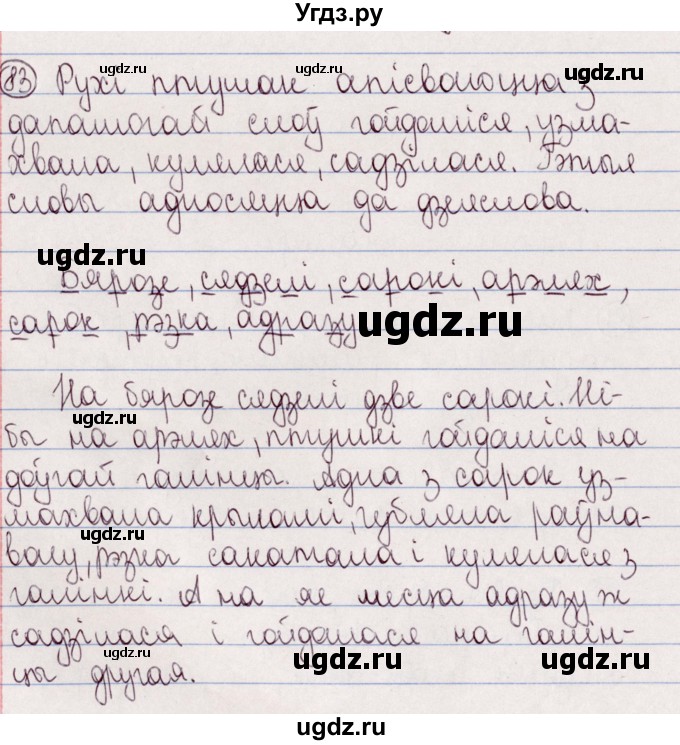 Угдз.ру
83 Рухі птушак апісваюцца з
дапамогай слоў гойдаліся, узма-
хвала, кулялася, садзілася. Гэтыя
словы адносяцца да дзеяслова.
Бярозе, сядзелі, сарокі, арэлях,
сарок, рэзка, адразу
На бярозе сядзелі дзве сарокі. Ні-
бы на арэлях, птушкі гойдаліся на
доўгай галінцы. Адна з сарок уз-
махвала крыламі, губляла раўна-
вагу, рэзка сакатала і кулялася з
галінкі. А на яе месца адразу ж
садзілася і гойдалася на галін-
цы другая.
ugdz.ru
ugdz.ru
ugdz.ru
ugdz.ru
ugdz.ru
ugdz.ru
ugdz.ru
ugdz.ru
ugdz.ru
ugdz.ru
ugdz.ru
ugdz.ru